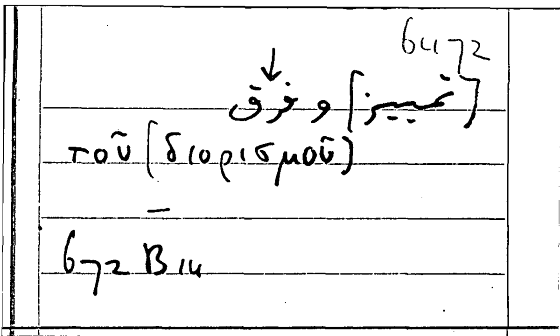 6472
↓
[تمييز] و فرق
τοῦ [διορισμοῦ]
–
672 B 14